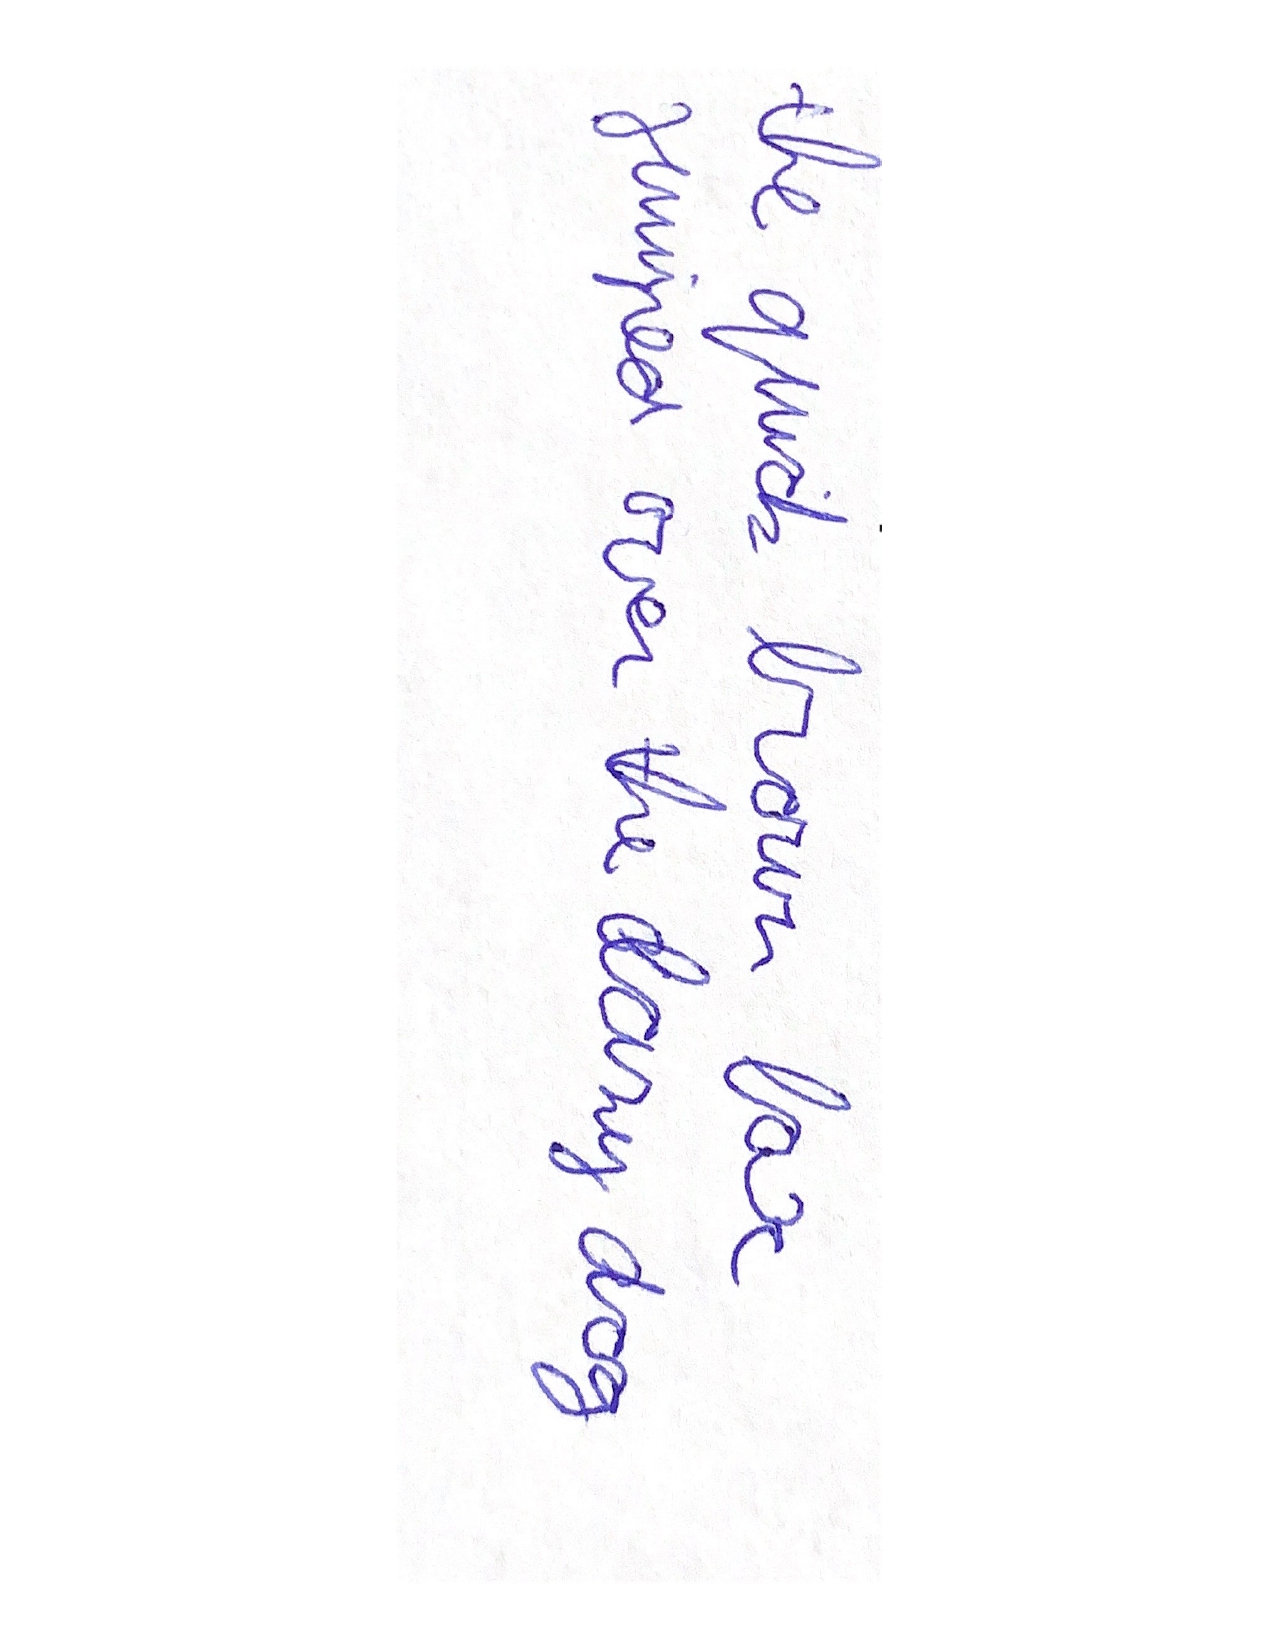 the quick brown fox
jumped over the lazy dog